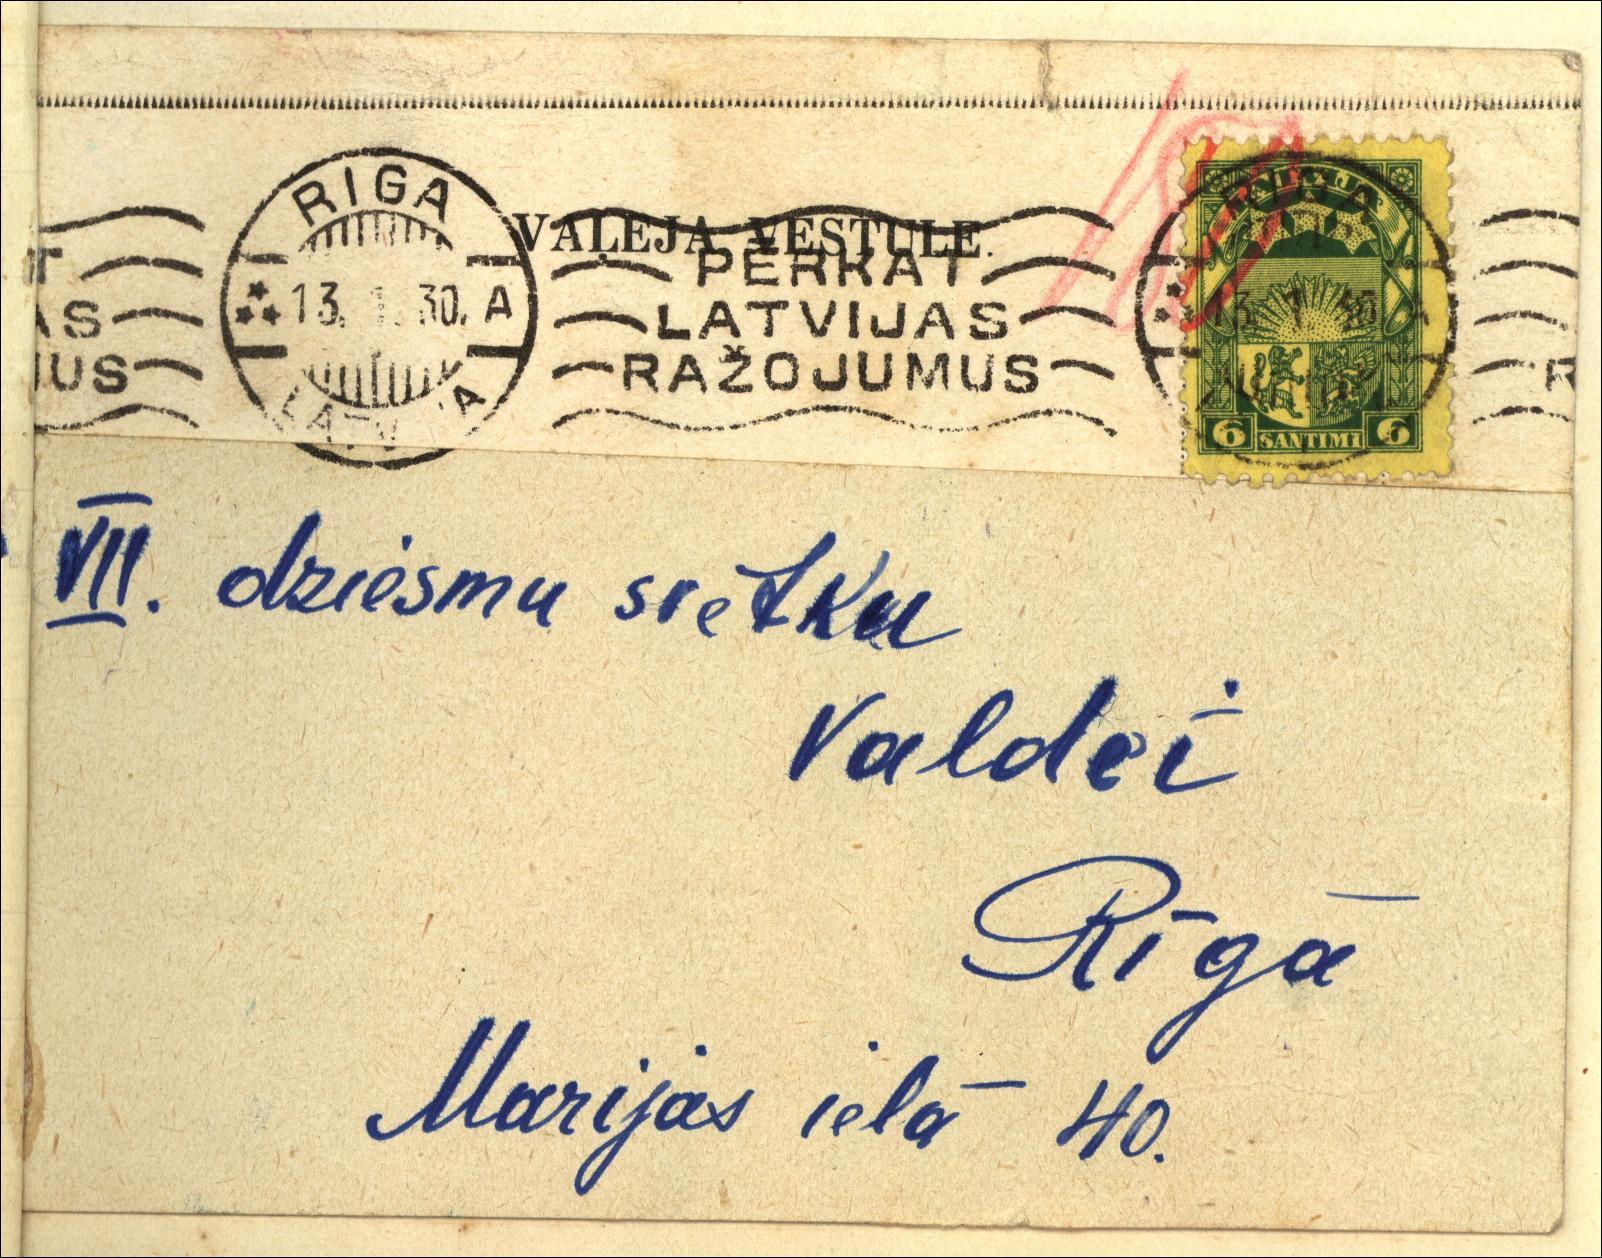 VAĻEJA VĒSTULE.
T
AS
MUS
RIGA
13. 1. 30. A
LATVIJA
PĒRKAT
LATVIJAS
RAŽOJUMUS
LATVIJA
RIGA
13. 1. 30
6 SANTIMI 6
R
VII. dziesmu svētku
Valdei
Rīgā
Marijas ielā 40.